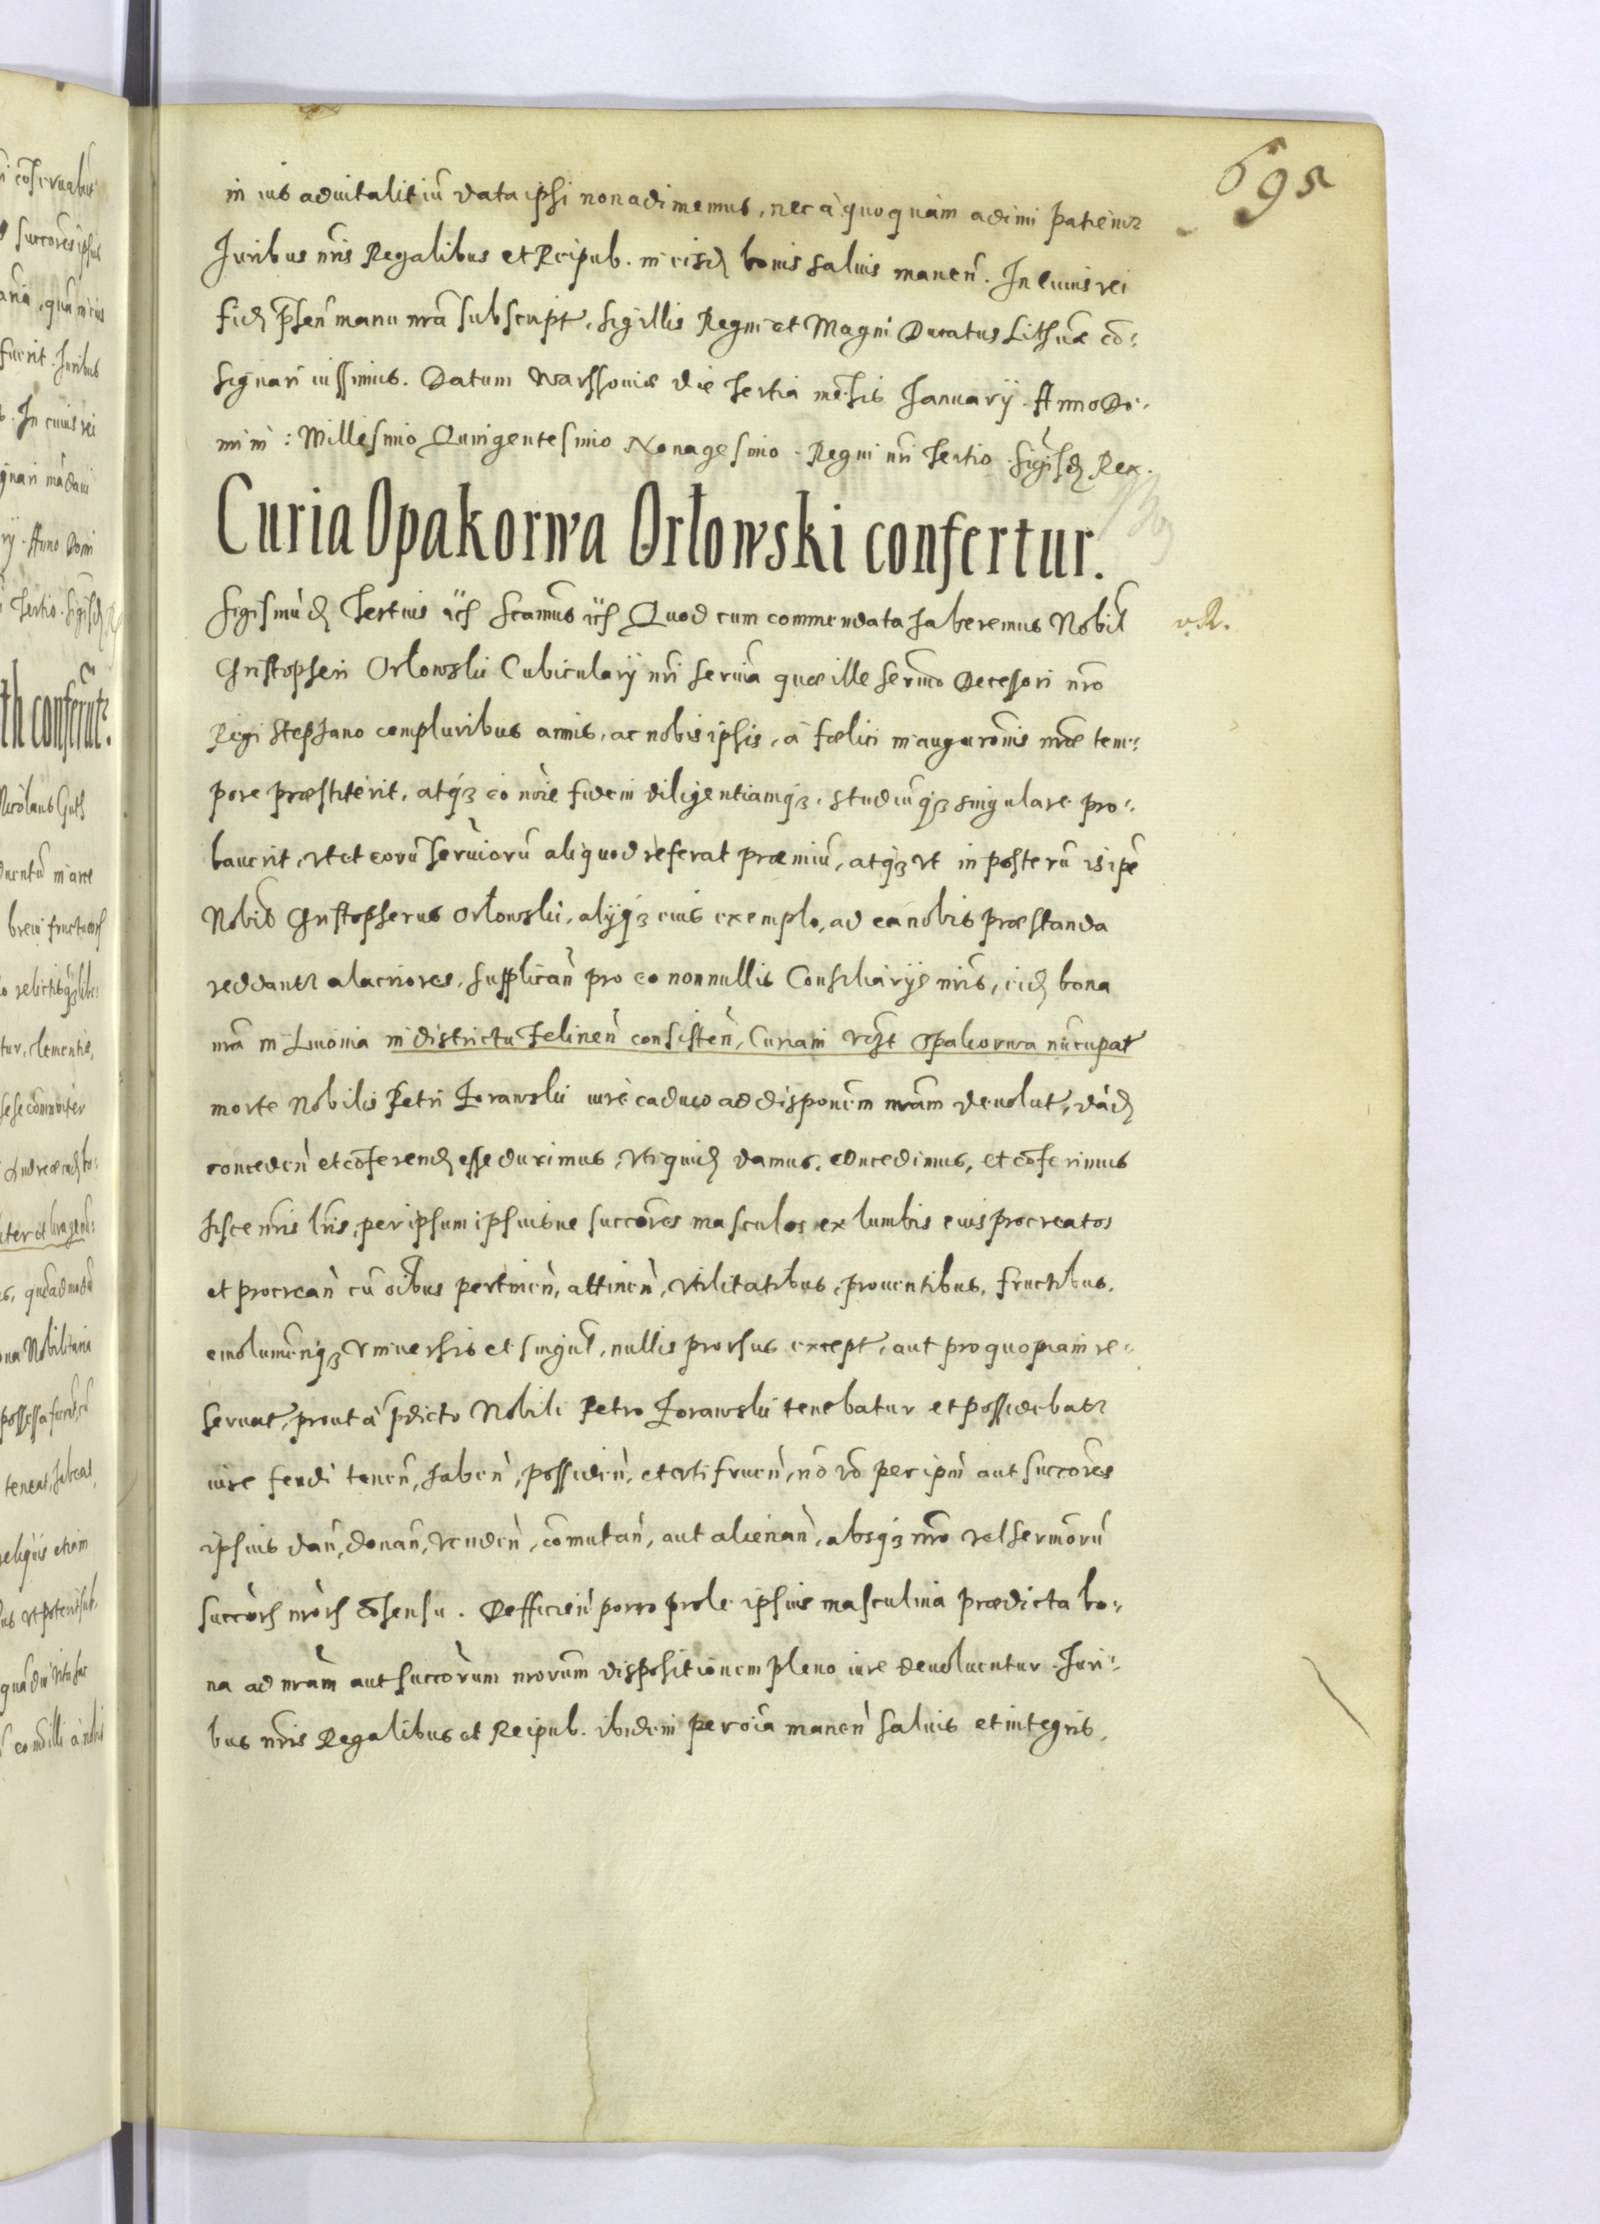 695
in ius aduitalitiũ data ipsi non adimemus, nec à quoquam adimi patiemur
Juribus nr̃is Regalibus et Reipub. in eisd̃ bonis saluis manen̄. In cuius rei
fid̃ p̃sen̄ manu nr̃a subscript, sigillis Regni et Magni Ducatus Lithuæ cō:
signari iussimus. Datum Warssouiæ die tertia mēsis January. Anno Do:
mini: Millesimo Quingentesimo Nonagesimo. Regni nr̃i tertio. Sigisd̃ Rex.
Curia Opakorwa Orłowski confertur.
Sigismũd̃ Tertius Scamus Quod cum commendata haberemus Nobil̃
v. R.
Christopheri Orłowski Cubiculary nr̃i seruia quæ ille sermo Decessori nr̃o
Regi Stephano compluribus annis, ac nobis ipsis, à fœlici inauguronis nr̃æ tem:
pore præstiterit, atq3 eo noie fidem diligentiamq3, studiũq3 singulare pro:
bauerit, vt et eorũ seruiorũ aliquod referat præmiũ, atq3 vt in posterũ is ipẽ
Nobilis Christopherus Orłowski, alyq3 eius exemplo, ad ea nobis præstanda
reddantur alacriores, supplican̄ pro eo nonnullis Consiliarys nr̃is, eid̃ bona
nr̃a in Liuonia in districtu Felinen̄ consisten̄, Curiam vczt Opakorwa nũcupat
morte Nobilis Petri Zorawski iure caduco ad disponem nr̃am deuolut, dād̃
conceden̄ et cōferend̃ esse duximus, vti quid̃ damus, concedimus, et cōferimus
hisce nr̃is lr̃is, per ipsum ipsiusue succores masculos ex lumbis eius procreatos
et procrean̄ cũ oĩbus pertinen̄, attinen̄, vtilitatibus, prouentibus, fructibus,
emolumen̄q3 vniuersis et singul̃, nullis prorsus except, aut pro quopiam re:
seruat, prout à p̃dicto Nobili Petro Zorawski tenebatur et possidebatur
iure feudi tenen̄, haben̄, possiden̄, et vti fruen̄, nō vō per ipm̃ aut succores
ipsius dan̄, donan̄, venden̄, cōmutan̄, aut alienan̄, absq3 nr̃o vel sermorũ
succorũ nr̃orũ cōsensu. Defficien̄ porro prole ipsius masculina prædicta bo:
na ad nr̃am aut succorum nr̃orum dispositionem pleno iure deuoluentur. Juri:
bus nr̃is Regalibus et Reipub. ibidem per oĩa manen̄ saluis et integris.